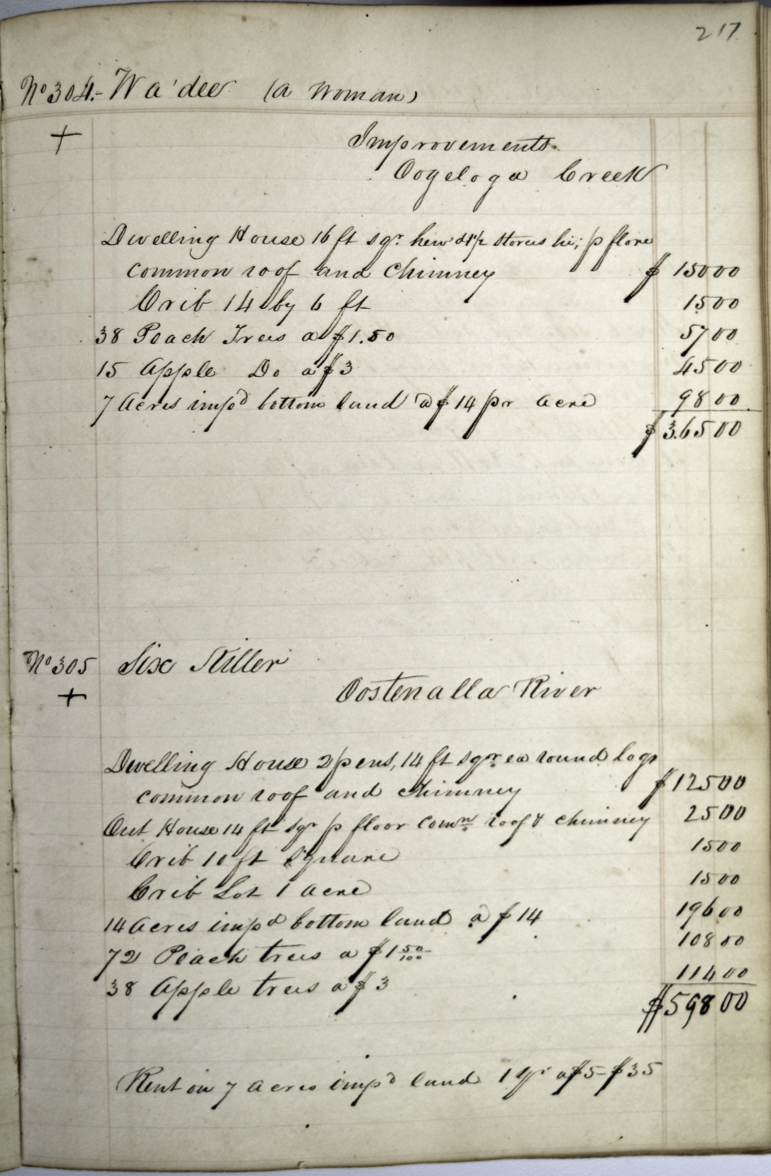 217
No 304.- Wa'dee (a woman)
+ Improvements.
Oogeloga Creek
Dwelling House 16 ft sqr. hew d p flore
common roof and chimney $ 150 00
Crib 14 by 6 ft 15 00
38 Peach Trees a $1.50 57 00
15 Apple Do a $3 45 00
7 Acres imp'd bottom land a $14 pr acre 98 00
$ 365 00
No 305 Six Killer
+ Oostenalla River
Dwelling House 2 pens, 14 ft sqr ea round logs
common roof and chimney $ 125 00
Out House 14 ft sqr p floor comn roof & chimney 25 00
Crib 10 ft square 15 00
Crib Lot 1 acre 15 00
14 Acres imp'd bottom land a $14 196 00
72 Peach trees a $1 50/100 108 00
38 Apple trees a $3 114 00
$ 598 00
Rent on 7 acres imp'd land 1 yr a $5 - $35